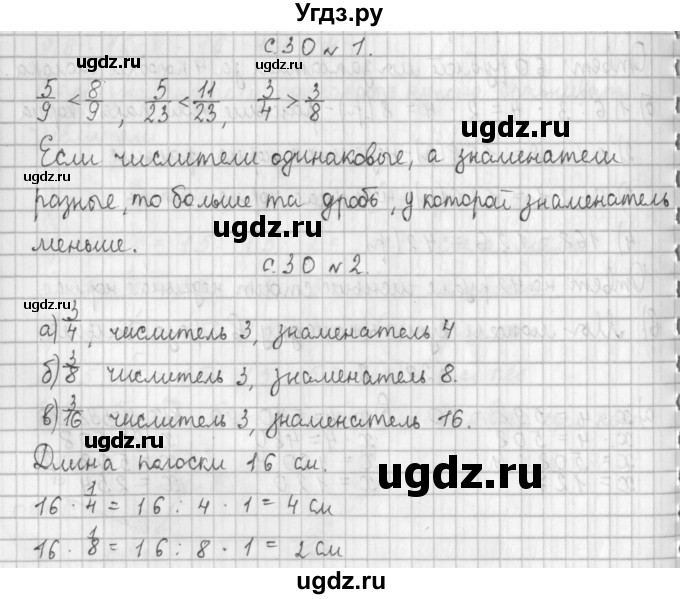 Угдз.ру
с.30 № 1.
5/9 < 8/9, 5/23 < 11/23, 3/4 > 3/8
Если числители одинаковые, а знаменатели
разные, то больше та дробь, у которой знаменатель
меньше.
с.30 № 2.
а) 3/4, числитель 3, знаменатель 4
б) 3/8 числитель 3, знаменатель 8.
в) 3/16 числитель 3, знаменатель 16.
Длина полоски 16 см.
16 · 1/4 = 16 : 4 · 1 = 4 см
16 · 1/8 = 16 : 8 · 1 = 2 см
ugdz.ru
ugdz.ru
ugdz.ru
ugdz.ru
ugdz.ru
ugdz.ru
ugdz.ru
ugdz.ru
ugdz.ru
ugdz.ru
ugdz.ru
ugdz.ru
ugdz.ru